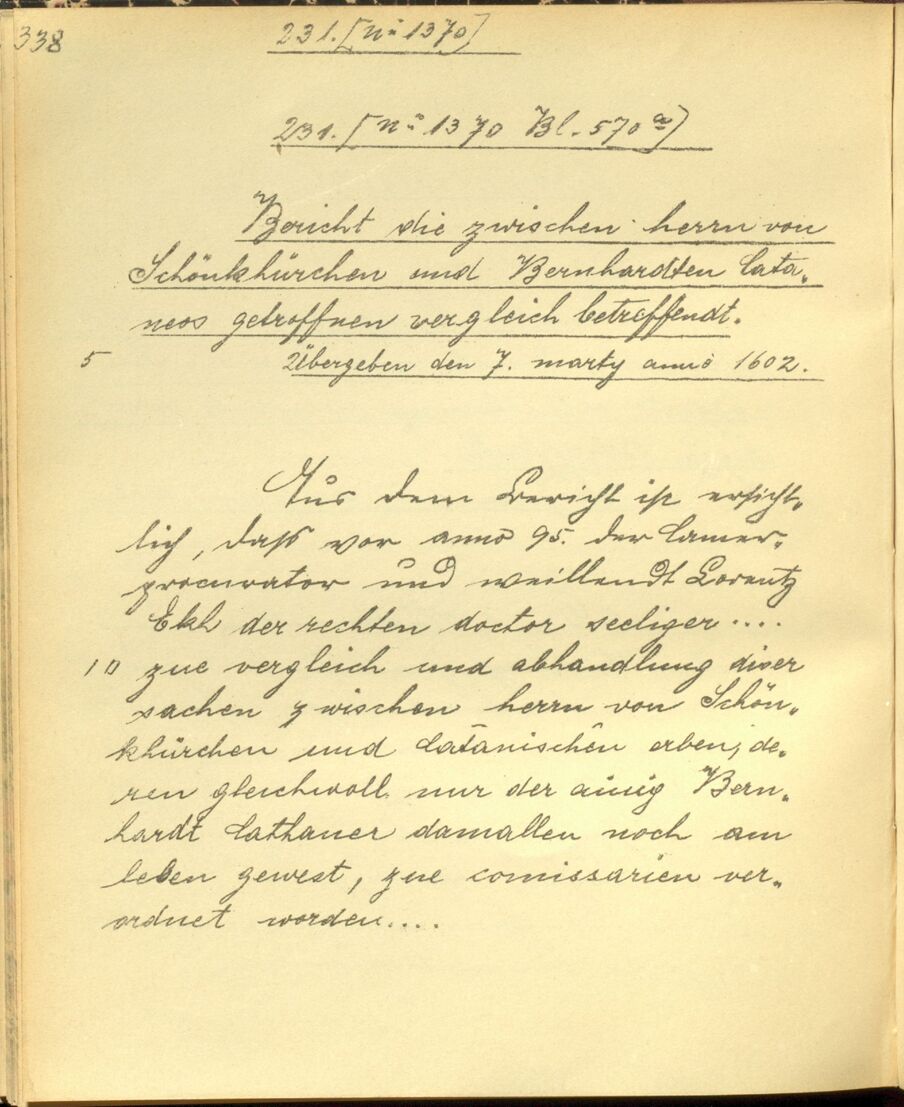 338
231. [No 1370]
231. [No 1370 Bl. 570a]
Bericht die zwischen herrn von
Schönkhürchen und Bernhardten Cata„
neos getroffnen vergleich betreffendt.
5 Übergeben den 7. marty anno 1602.
Aus dem Bericht ist ersicht„
lich, dass vor anno 95. der Camer„
procurator und weillendt Lorentz
Ekh der rechten doctor seeliger ....
10 zue vergleich und abhandlung diser
sachen zwischen herrn von Schön„
khürchen und Catanischen erben, de„
ren gleichwoll nur der ainig Bern„
hardt Cathaner damallen noch am
leben gewest, zue comissarien ver„
ordnet worden....